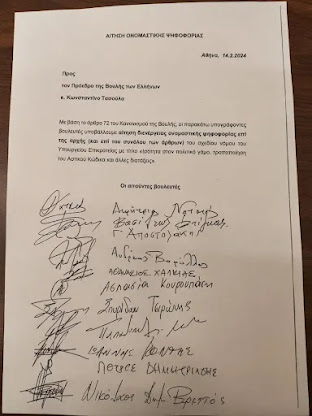 ΑΙΤΗΣΗ ΟΝΟΜΑΣΤΙΚΗΣ ΨΗΦΟΦΟΡΙΑΣ
Αθήνα, 14.2.2024
Προς
τον Πρόεδρο της Βουλής των Ελλήνων
κ. Κωνσταντίνο Τασούλα
Με βάση το άρθρο 72 του Κανονισμού της Βουλής, οι παρακάτω υπογράφοντες
βουλευτές υποβάλλουμε αίτηση διενέργειας ονομαστικής ψηφοφορίας επί
της αρχής (και επί του συνόλου των άρθρων) του σχεδίου νόμου του
Υπουργείου Επικρατείας με τίτλο «Ισότητα στον πολιτικό γάμο, τροποποίηση
του Αστικού Κώδικα και άλλες διατάξεις».
Οι αιτούντες βουλευτές
Δημήτριος
Βασίλειος Στίγκας
Γ. Αποστολάκη
Ανδρέας
ΑΘΑΝΑΣΙΟΣ ΧΑΛΚΙΑΣ
Ασπασία Κουρουπάκη
Σπυρίδων Τσιρώνης
ΙΩΑΝΝΗΣ ΚΟΝΤΗΣ
Νικόλαος Βρεττός